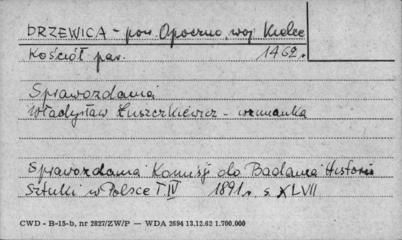 DRZEWICA - pow. Opoczno, woj. Kielce
Kościół par. 1462 r.
Sprawozdania
Władysław Łuszczkiewicz - wzmianka
Sprawozdania Komisji do Badania Historii
Sztuki w Polsce T. IV 1891 r. s XLVII
CWD - B-15-b, nr 2827/ZW/P — WDA 2694 13.12.62 1.700.000